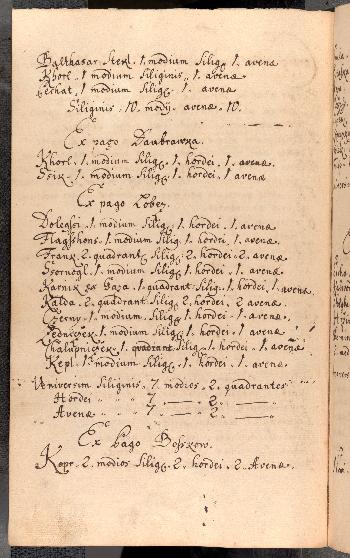 Balthasar Stekl. 1. modium Silig. 1. avenæ
Khorl. 1 modium Siliginis, 1. avenæ
Lechat. 1 modium Silig. 1. avenæ
Siliginis. 10. modij. avenæ. 10.
Ex pago Daubrawka.
Khorl. 1. modium Silig. 1. hordei. 1. avenæ.
1. modium Silig. 1. hordei. 1 avenæ
Ex pago Lobez.
1 modium Silig. 1. hordei. 1 avenæ
1. modium Silig. 1. hordei. 1. avenæ.
Frank 2. quadrant. Silig. 2. hordei. 2. avenæ.
1. modium Silig. 1 hordei. 1. avenæ
Karnik 1. quadrant Silig. 1. hordei, 1. avenæ
Kalda. 2. quadrant Silig. 2. hordei. 2 avenæ
Czerny. 1. modium. Silig. 1 hordei. 1. avenæ.
1. modium Silig. 1 hordei. 1. avenæ
Chalupniczek. 1. quadrant Silig. 1. hordei. 1. avenæ
Kepl. 1. modium Silig. 1. hordei. 1. avenæ.
Universim Siliginis. 7. modios. 2. quadrantes
Hordei 7 2.
Avenæ 7 2.
Ex pago
2. modios Silig. 2. hordei. 2. Avenæ.